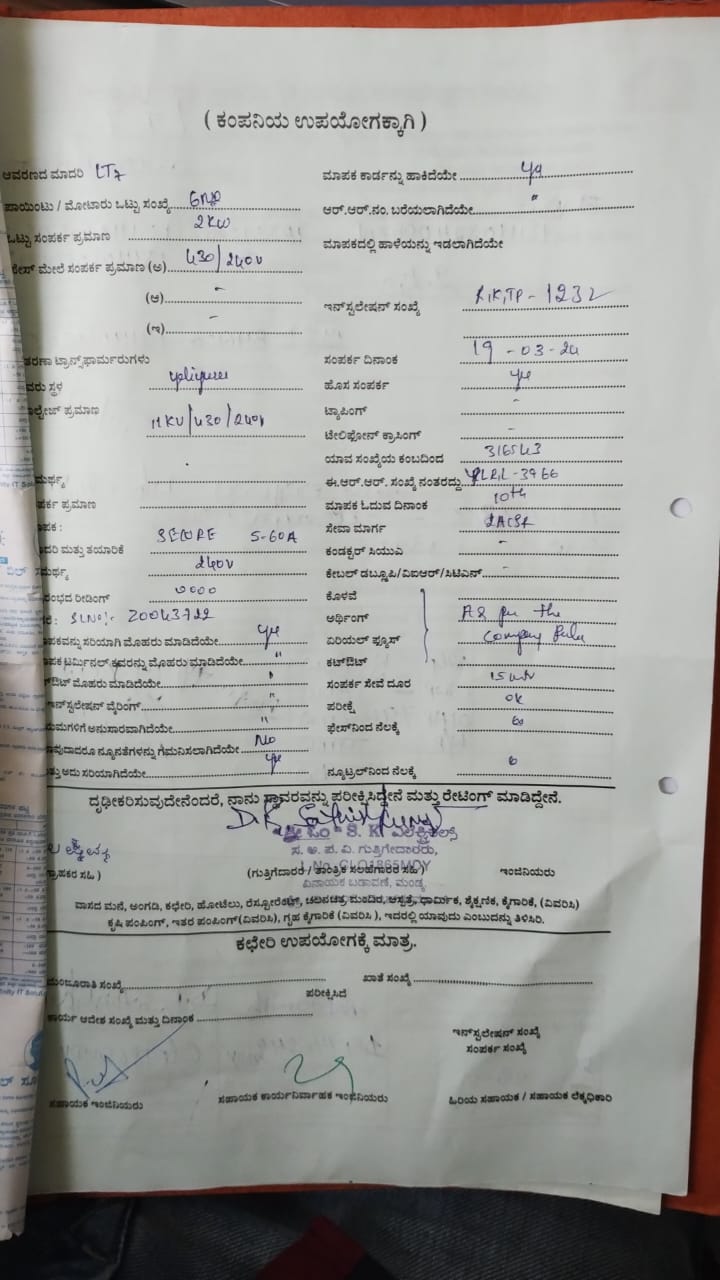 ( ಕಂಪನಿಯ ಉಪಯೋಗಕ್ಕಾಗಿ )
ಆವರಣದ ಮಾದರಿ LT7
ಮಾಪಕ ಕಾರ್ಡನ್ನು ಹಾಕಿದೆಯೇ
ಪಾಯಿಂಟು / ಮೋಟಾರು ಒಟ್ಟು ಸಂಖ್ಯೆ
ಆರ್.ಆರ್.ನಂ. ಬರೆಯಲಾಗಿದೆಯೇ "
ಒಟ್ಟು ಸಂಪರ್ಕ ಪ್ರಮಾಣ 2KW
ಮಾಪಕದಲ್ಲಿ ಹಾಳೆಯನ್ನು ಇಡಲಾಗಿದೆಯೇ
ಮೇಲೆ ಸಂಪರ್ಕ ಪ್ರಮಾಣ (ಅ) 430/240V
(ಆ) -
ಇನ್‌ಸ್ಟಲೇಷನ್ ಸಂಖ್ಯೆ R,K,TP - 1232
(ಇ) -
ತರಣಾ ಟ್ರಾನ್ಸ್‌ಫಾರ್ಮರುಗಳು
ಸಂಪರ್ಕ ದಿನಾಂಕ 19 -03-24
ವರು ಸ್ಥಳ
ಹೊಸ ಸಂಪರ್ಕ ye
ಲ್ಟೇಜ್ ಪ್ರಮಾಣ 11KV/430/240V
ಟ್ಯಾಪಿಂಗ್ -
ಟೇಲಿಫೋನ್ ಕ್ರಾಸಿಂಗ್ -
ಯಾವ ಸಂಖ್ಯೆಯ ಕಂಬದಿಂದ 316543
ಮರ್ಥ್ಯ
ಈ.ಆರ್.ಆರ್. ಸಂಖ್ಯೆ ನಂತರದ್ದು -3966
ಪರ್ಕ ಪ್ರಮಾಣ
ಮಾಪಕ ಓದುವ ದಿನಾಂಕ 10th
ಾಪಕ :
ಸೇವಾ ಮಾರ್ಗ 2ACSR
ಾದರಿ ಮತ್ತು ತಯಾರಿಕೆ SECURE 5-60A
ಕಂಡಕ್ಟರ್ ಸಿಯುಎ -
ಮರ್ಥ್ಯ 240V
ಕೇಬಲ್ ಡಬ್ಲೂಪಿ/ವಿಐಆರ್/ಸಿಟಿಎಸ್ -
ರಂಭದ ರೀಡಿಂಗ್ 0000
ಕೊಳವೆ
SLNo:- 20043722
ಅರ್ಥಿಂಗ್ As per the
ಪಕವನ್ನು ಸರಿಯಾಗಿ ಮೊಹರು ಮಾಡಿದೆಯೇ ye
ಏರಿಯಲ್ ಫ್ಯೂಸ್ Company Rules
ಾಪಕ ಟರ್ಮಿನಲ್ ಕವರನ್ನು ಮೊಹರು ಮಾಡಿದೆಯೇ "
ಕಟ್‌ಔಟ್
ಔಟ್ ಮೊಹರು ಮಾಡಿದೆಯೇ "
ಸಂಪರ್ಕ ಸೇವೆ ದೂರ
ಇನ್‌ಸ್ಟಲೇಷನ್ ವೈರಿಂಗ್ "
ಪರೀಕ್ಷೆ ok
ಯಮಗಳಿಗೆ ಅನುಸಾರವಾಗಿದೆಯೇ "
ಫೇಸ್‌ನಿಂದ ನೆಲಕ್ಕೆ
ಾವುದಾದರೂ ನ್ಯೂನತೆಗಳನ್ನು ಗಮನಿಸಲಾಗಿದೆಯೇ No
ತ್ತು ಅದು ಸರಿಯಾಗಿದೆಯೇ ye
ನ್ಯೂಟ್ರಲ್‌ನಿಂದ ನೆಲಕ್ಕೆ
ದೃಢೀಕರಿಸುವುದೇನೆಂದರೆ, ನಾನು ಸ್ಥಾವರವನ್ನು ಪರೀಕ್ಷಿಸಿದ್ದೇನೆ ಮತ್ತು ರೇಟಿಂಗ್ ಮಾಡಿದ್ದೇನೆ.
ಶ್ರೀ ಓಂ S. K. ಎಲೆಕ್ಟ್ರಿಕಲ್ಸ್
ಸ. ಅ. ಪ. ವಿ. ಗುತ್ತಿಗೆದಾರರು,
ಗ್ರಾಹಕರ ಸಹಿ )
(ಗುತ್ತಿಗೆದಾರರ / ತಾಂತ್ರಿಕ ಸಲಹೆಗಾರರ ಸಹಿ )
ಇಂಜಿನಿಯರು
ವಿನಾಯಕ ಬಡಾವಣೆ, ಮಂಡ್ಯ
ವಾಸದ ಮನೆ, ಅಂಗಡಿ, ಕಛೇರಿ, ಹೋಟೆಲು, ರೆಸ್ಟೋರೆಂಟ್, ಚಲನಚಿತ್ರ ಮಂದಿರ, ಆಸ್ಪತ್ರೆ, ಧಾರ್ಮಿಕ, ಶೈಕ್ಷಣಿಕ, ಕೈಗಾರಿಕೆ, (ವಿವರಿಸಿ)
ಕೃಷಿ ಪಂಪಿಂಗ್, ಇತರ ಪಂಪಿಂಗ್(ವಿವರಿಸಿ), ಗೃಹ ಕೈಗಾರಿಕೆ (ವಿವರಿಸಿ ), ಇದರಲ್ಲಿ ಯಾವುದು ಎಂಬುದನ್ನು ತಿಳಿಸಿರಿ.
ಕಛೇರಿ ಉಪಯೋಗಕ್ಕೆ ಮಾತ್ರ.
ಮಂಜೂರಾತಿ ಸಂಖ್ಯೆ
ಖಾತೆ ಸಂಖ್ಯೆ
ಪರೀಕ್ಷಿಸಿದೆ
ಕಾರ್ಯ ಆದೇಶ ಸಂಖ್ಯೆ ಮತ್ತು ದಿನಾಂಕ
ಇನ್‌ಸ್ಟಲೇಷನ್ ಸಂಖ್ಯೆ
ಸಂಪರ್ಕ ಸಂಖ್ಯೆ
ಸಹಾಯಕ ಇಂಜಿನಿಯರು
ಸಹಾಯಕ ಕಾರ್ಯನಿರ್ವಾಹಕ ಇಂಜಿನಿಯರು
ಹಿರಿಯ ಸಹಾಯಕ / ಸಹಾಯಕ ಲೆಕ್ಕಾಧಿಕಾರಿ